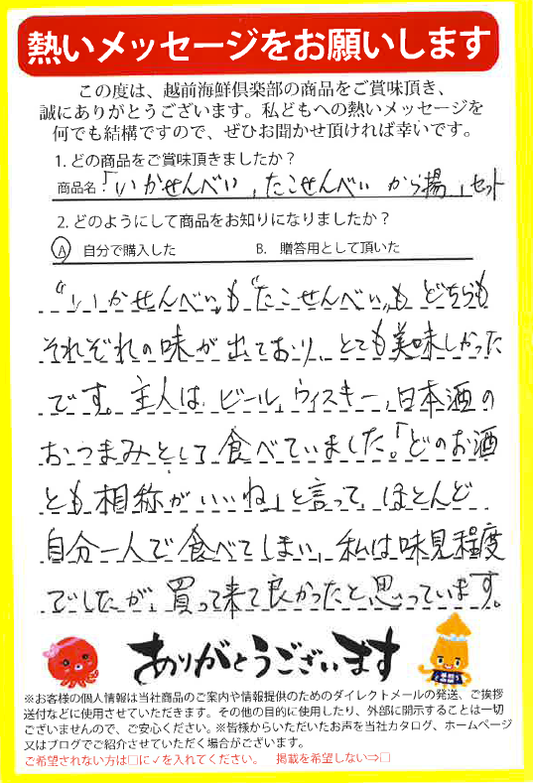 熱いメッセージをお願いします
この度は、越前海鮮倶楽部の商品をご賞味頂き、
誠にありがとうございます。私どもへの熱いメッセージを
何でも結構ですので、ぜひお聞かせ頂ければ幸いです。
1. どの商品をご賞味頂きましたか？
商品名：「いかせんべい，たこせんべい から揚」セット
2. どのようにして商品をお知りになりましたか？
A 自分で購入した B. 贈答用として頂いた
“いかせんべい〟も“たこせんべい〟も どちらも
それぞれの味が出ており、とても美味しかった
です。主人は ビール，ウィスキー，日本酒の
おつまみとして食べていました。「どのお酒
とも相称がいいね」と言って、ほとんど
自分一人で食べてしまい、私は味見程度
でしたが、買って来て良かったと思っています。
ありがとうございます
※お客様の個人情報は当社商品のご案内や情報提供のためのダイレクトメールの発送、ご挨拶
送付などに使用させていただきます。その他の目的に使用したり、外部に開示することは一切
ございませんので、ご安心ください。※皆様からいただいたお声を当社カタログ、ホームページ
又はブログでご紹介させていただく場合がございます。
ご希望されない方は□に✓を入れてください。 掲載を希望しない⇒□